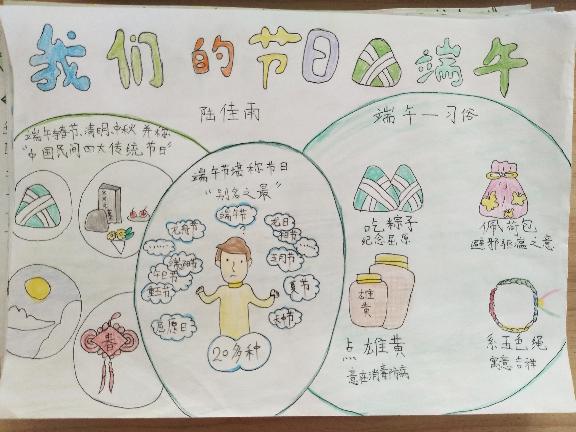 我们的节日 端午
陆佳雨
端午与春节、清明、中秋 并称
"中国民间四大传统节日"
春
端午节堪称节日
"别名之最"
端午节
龙舟节
端阳节
午日节
重五节
五月节
夏节
20多种
端午—习俗
吃粽子
纪念屈原
佩荷包
避邪驱瘟之意
雄黄
点雄黄
意在消毒防病
系五色绳
寓意吉祥